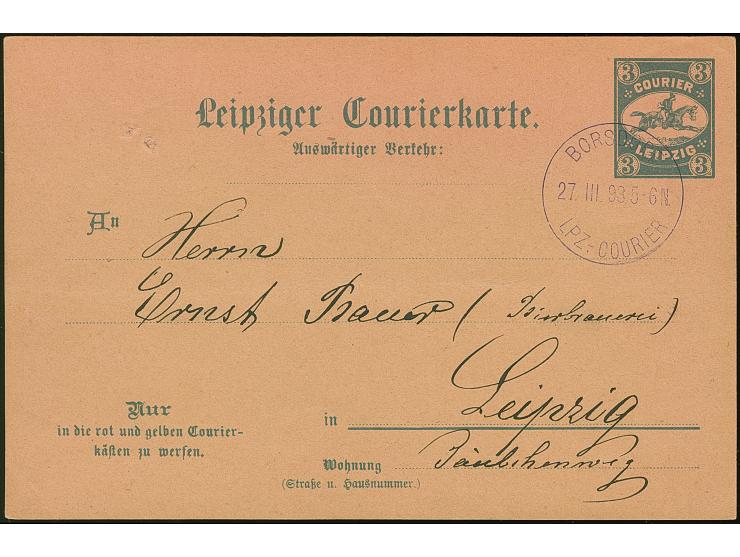 3 3
COURIER
LEIPZIG
3 3
Leipziger Courierkarte.
Auswärtiger Verkehr:
27. III. 93 5-6 N.
LPZ.-COURIER
An
Herrn
Ernst Bauer (Bierbrauerei)
Nur
in die rot und gelben Courier-
kästen zu werfen.
in Leipzig
Wohnung Täubchenweg
(Straße u. Hausnummer.)